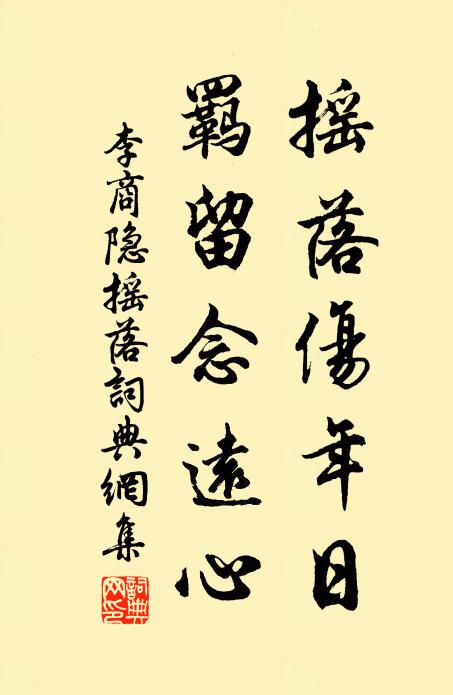 摇落傷年日
羈留念遠心
李商隐摇落詞典網集
詞典网印